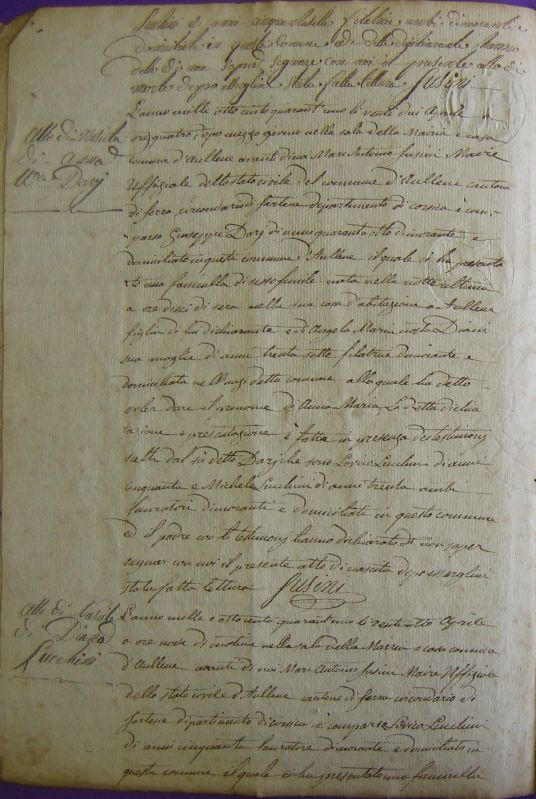 di anni cinquantasette filatrice ambi dimoranti e
domiciliati in questa Comune ed detti dichiaranti hanno
detto di non sapere segnare con noi il presente atto di
morte dopo essergline stata fatta lettura Susini
Atto di Nascita
di Anna
Mia Darj
L'anno mille otto cento quarant'uno li venti due Aprile a
ore quattro dopo mezzo giorno nella sala della Mairia e casa
comune d'Aullene avanti di noi Marc'Antonio Susini Maire
Uffiziale dello stato civile del comune d'Aullene cantone
di Serra, circondario di Sartene dipartimento di Corsica è com=
parso Giuseppe Darj di anni quaranta otto dimorante e
domiciliato in questa comune d'Aullene il quale ci ha presentato
una fanciulla di sesso femile nata nella notte ultima
a ore dieci di sera nella sua casa d'abitazione a Aullene
figlia di lui dichiarante e di Angela Maria nata
sua moglie di anni trenta sette filatrice dimorante e
domiciliata detta comune alla quale ha detto
voler dare il pronome di Anna Maria, La detta dichia
razione e presentazione è fatta in presenza de testimonj
scelti dal sudetto Darj che sono Lucchini di anni
cinquanta e Michele Lucchini di anni trenta ambi
lavoratori dimoranti e domiciliati in questa commune
ed il padre coi testimonj hanno dichiarato di non saper
segnar con noi il presente atto di nascita dopo essergline
stata fatta lettura Susini
Atto di Nascita
di
Lucchini
L'anno mille e otto cento quarant'uno li vent'otto Aprile
a ore nove di mattina nella sala della Mairia e casa comune
d'Aullene avanti di noi Marc'Antonio Susini Maire Uffiziale
dello stato civile d'Aullene cantone di Serra circondario di
Sartene dipartimento di Corsica è comparso Lucchini
di anni cinquanta lavoratore dimorante e domiciliato in
questa comune il quale ci ha presentato una fanciulla